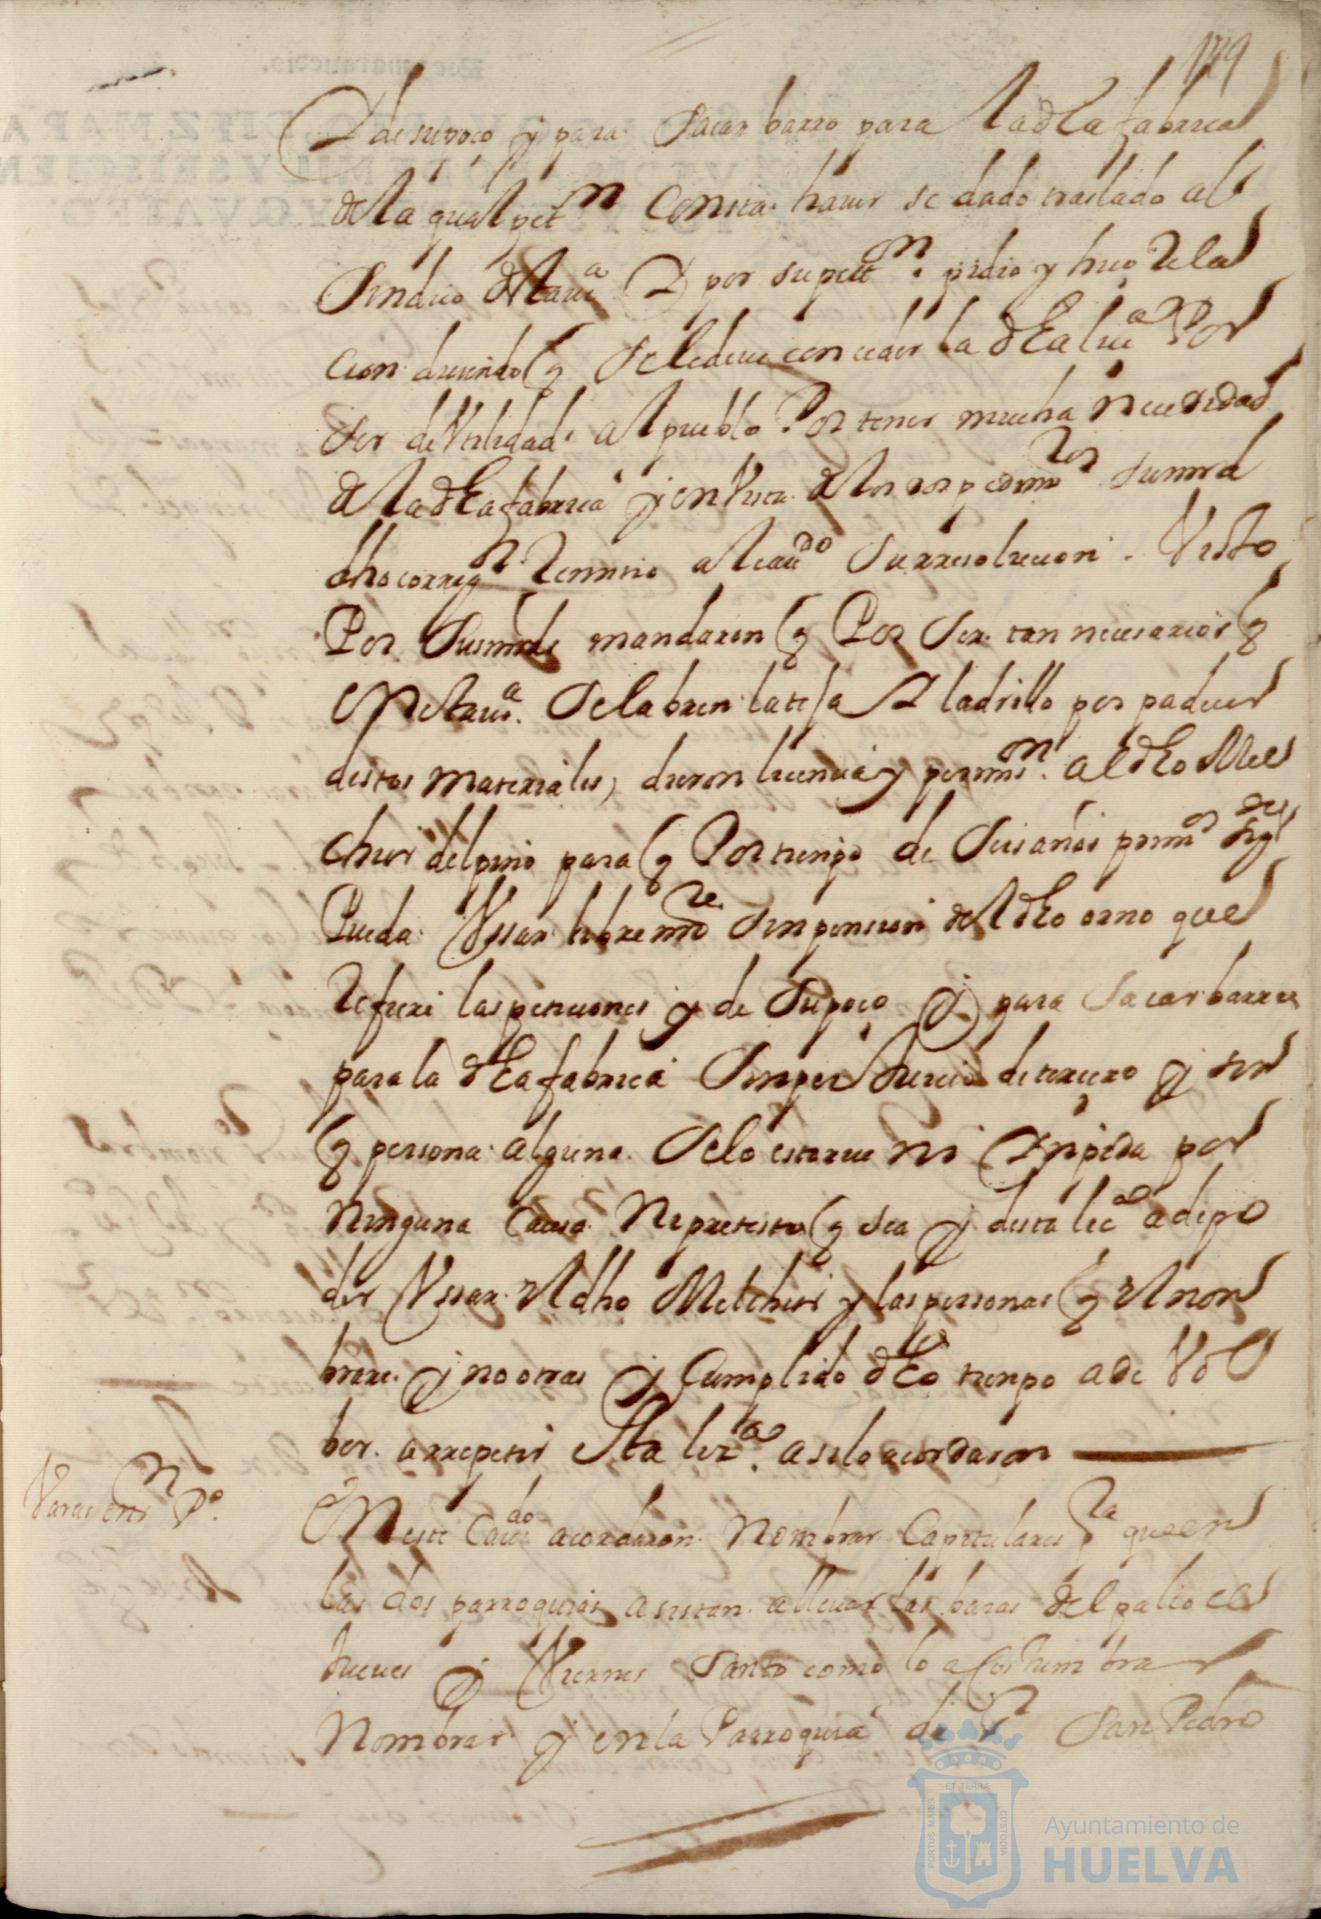 119
Y de su poço y para sacar barro para la dha fabrica
de la qual petⁿ consta haver se dado traslado al
Sindico desta vᵃ y por su petⁿ pidio y hiço Rela
cion diciendo q se le deve conceder la dha licᵃ Por
ser de Utilidad al pueblo Por tener mucha necesidad
de la dha fabrica y en Vista de los pedimᵗᵒˢ su mrd
dho corregᵒʳ Remitio al cauᵈᵒ su rresolucion. Visto
Por Sus mrds mandaron q Por ser tan necesarios q
en esta vᵃ se labren la teja y ladrillo por padecer
destos materiales, dieron licencia y permisⁿ al dho Mel
chior del pino para q Por tiempo de seis años primᵒˢ sigᵗᵉˢ
Pueda Ussar libremᵗᵉ sin pension del dho orno que
Refiere las peticiones y de su poço y para sacar barro
para la dha fabrica sin perjuicio de tercero y sin
q persona alguna se lo estorve ni inpida por
ninguna causa ni pretesto q sea y desta licᵃ a de po
der Ussar el dho Melchior y las personas q el nom
brare y no otras y Cumplido dho tienpo a de Vol
ber a rrepetir esta lizᵃ asi lo acordaron
Varas en Sⁿ Pᵒ
En este Cauᵈᵒ acordaron Nombrar Capitulares Pᵃ que en
las dos parroquias asistan a llevar las baras del palio el
Jueves y Viernes Santo como lo acostumbra
Nombrar y en la Parroquia de Sʳ San Pedro
PORTUS MARIS
ET TERRÆ
CUSTODIA
Ayuntamiento de
HUELVA